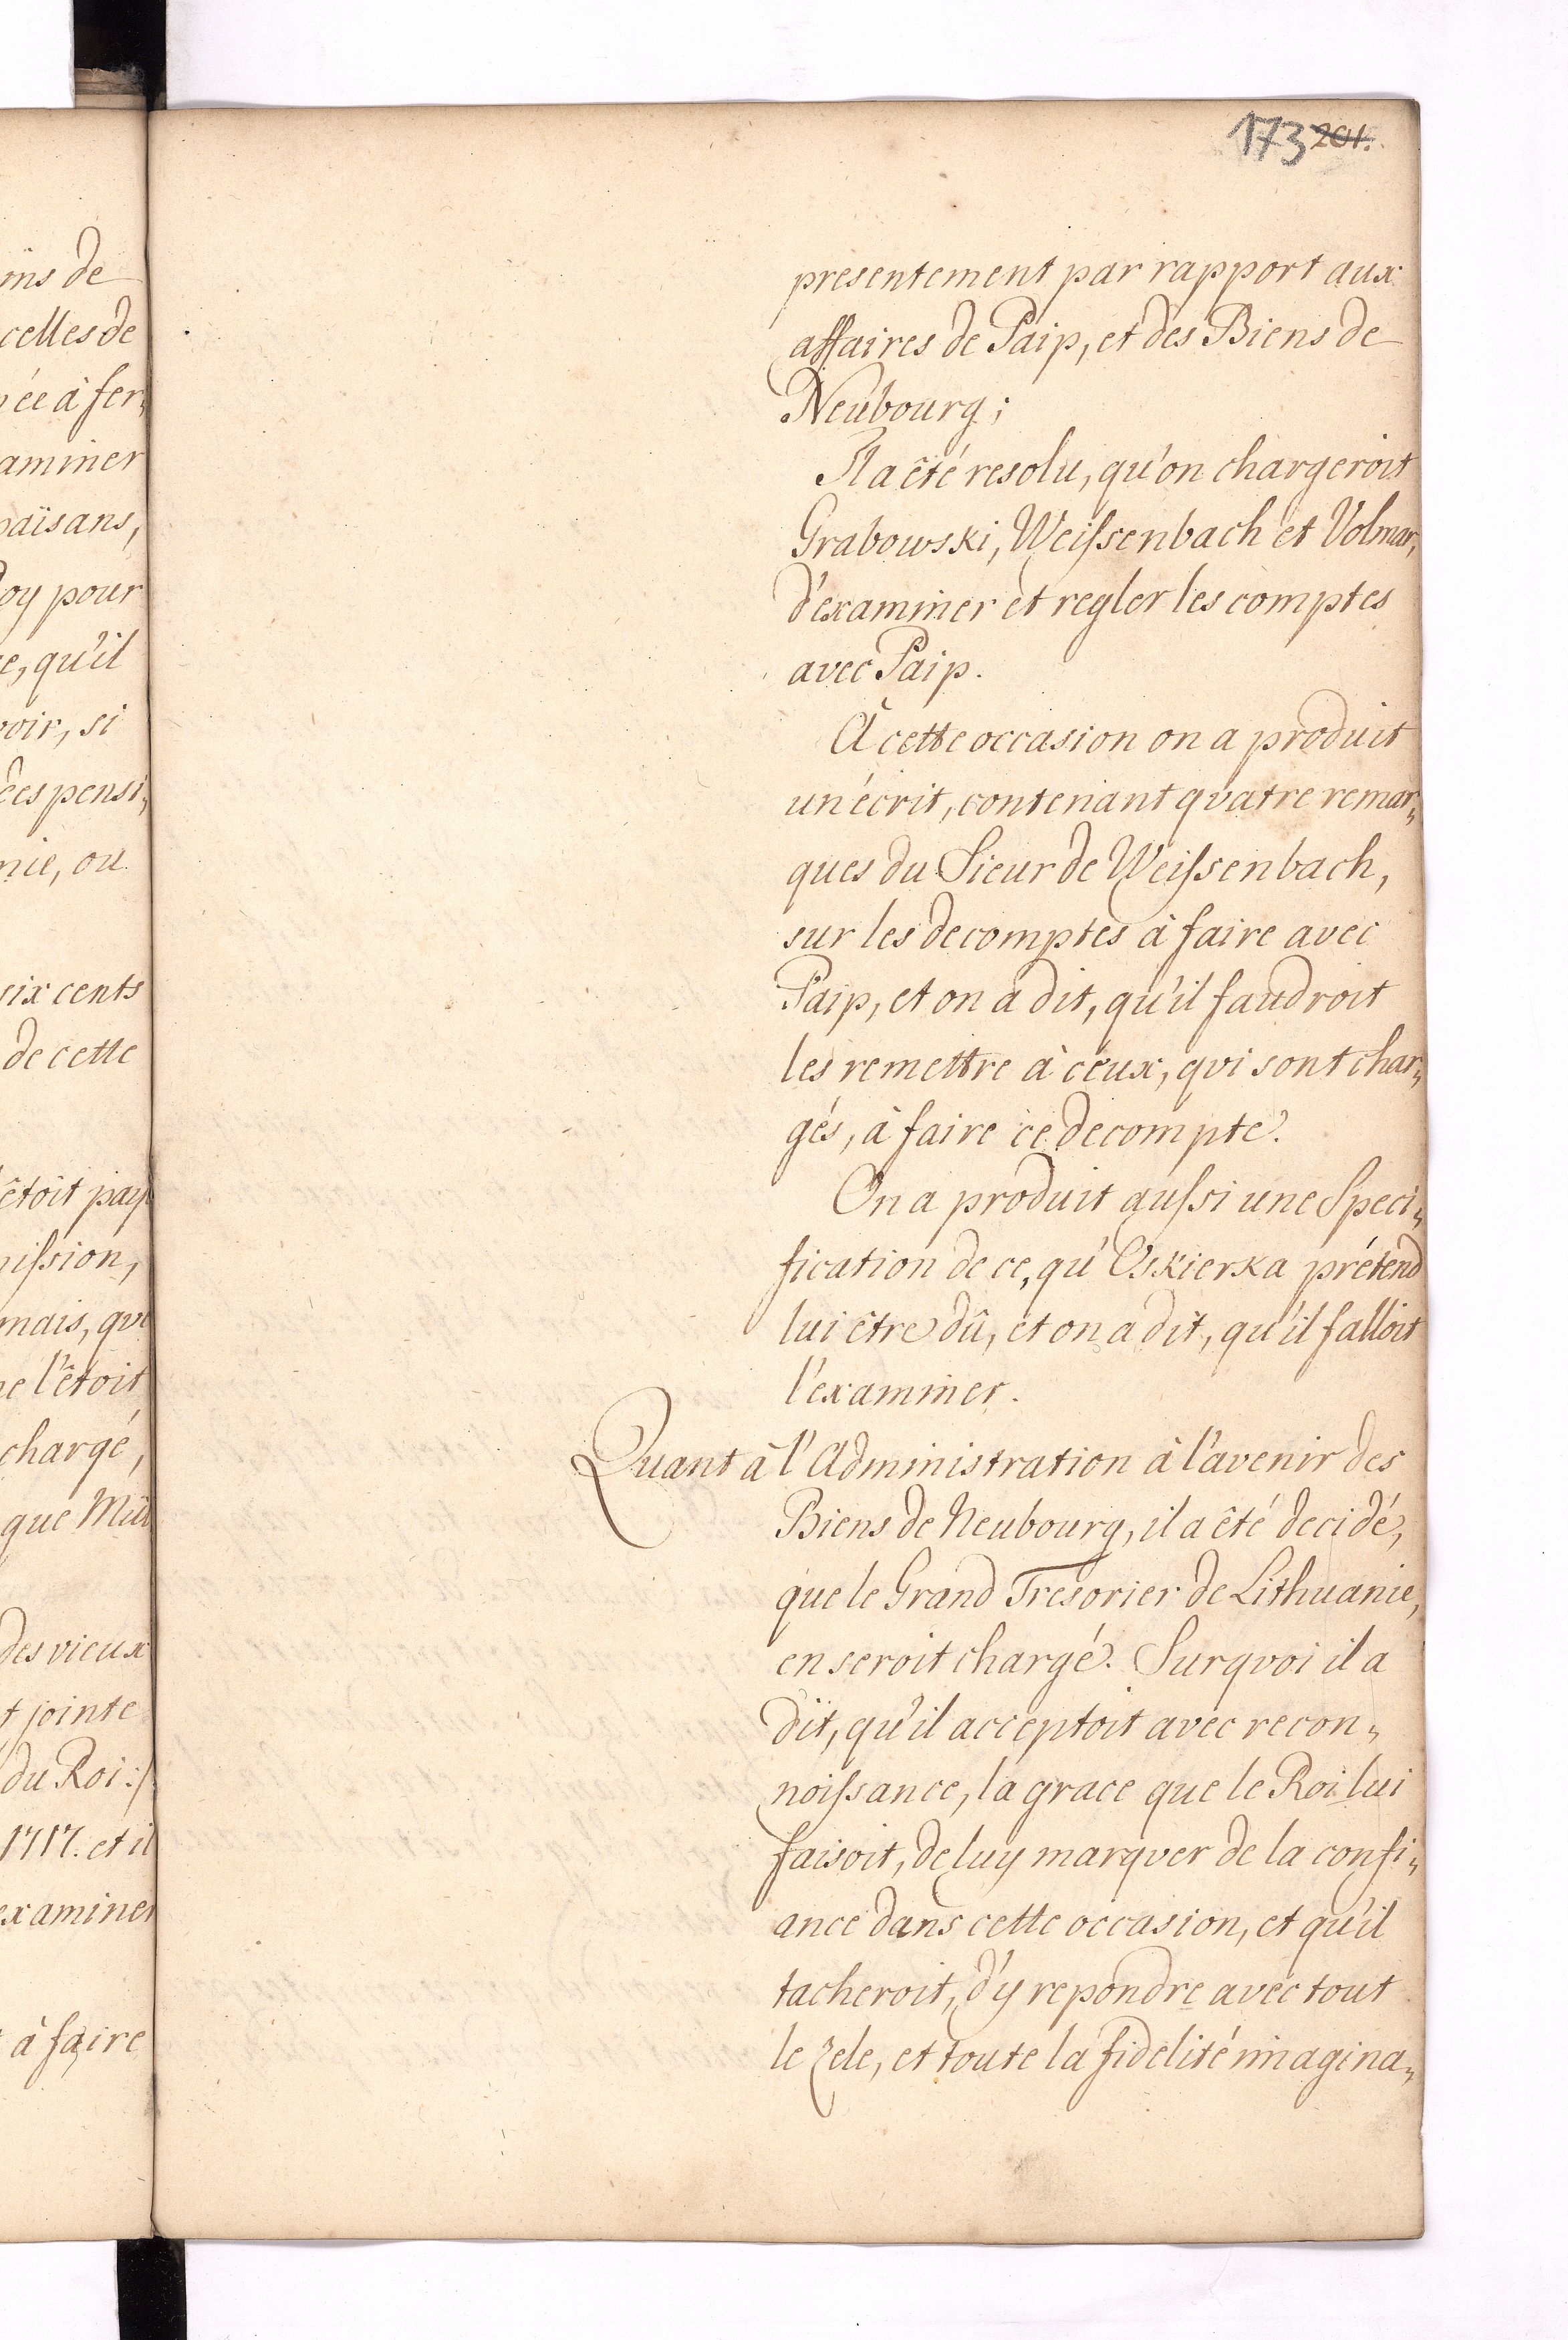 173 201.
ins de
celles de
née à fer„
aminer
païsans,
Roy pour
e, qu'il
voir, si
ées pensi„
nie, ou
six cents
de cette
êtoit pay
mission,
mais, qu
ne l'êtoit
chargé,
que Mül
des vieux
t jointe
du Roi:/
1717. et il
examiner
à faire
presentement par rapport aux
affaires de Paip, et des Biens de
Neubourg;
Il a êté resolu, qu'on chargeroit
Grabowski, Weissenbach et Volmar,
d'examiner et regler les comptes
avec Paip.
À cette occasion on a produit
un écrit, contenant qvatre remar„
ques du Sieur de Weissenbach,
sur les decomptes à faire avec
Paip, et on a dit, qu'il faudroit
les remettre à ceux, qvi sont char„
gés, à faire ce decompte.
On a produit aussi une Speci„
fication de ce, qu'Oskierka prétend
lui être dû, et on a dit, qu'il falloit
l'examiner.
Quant à l'Administration à l'avenir des
Biens de Neubourg, il a êté decidé,
que le Grand Tresorier de Lithuanie,
en seroit chargé. Surqvoi il a
dit, qu'il acceptoit avec recon„
noissance, la grace que le Roi lui
faisoit, de luy marqver de la confi„
ance dans cette occasion, et qu'il
tacheroit, d'y repondre avec tout
le zele, et toute la fidelité imagina„